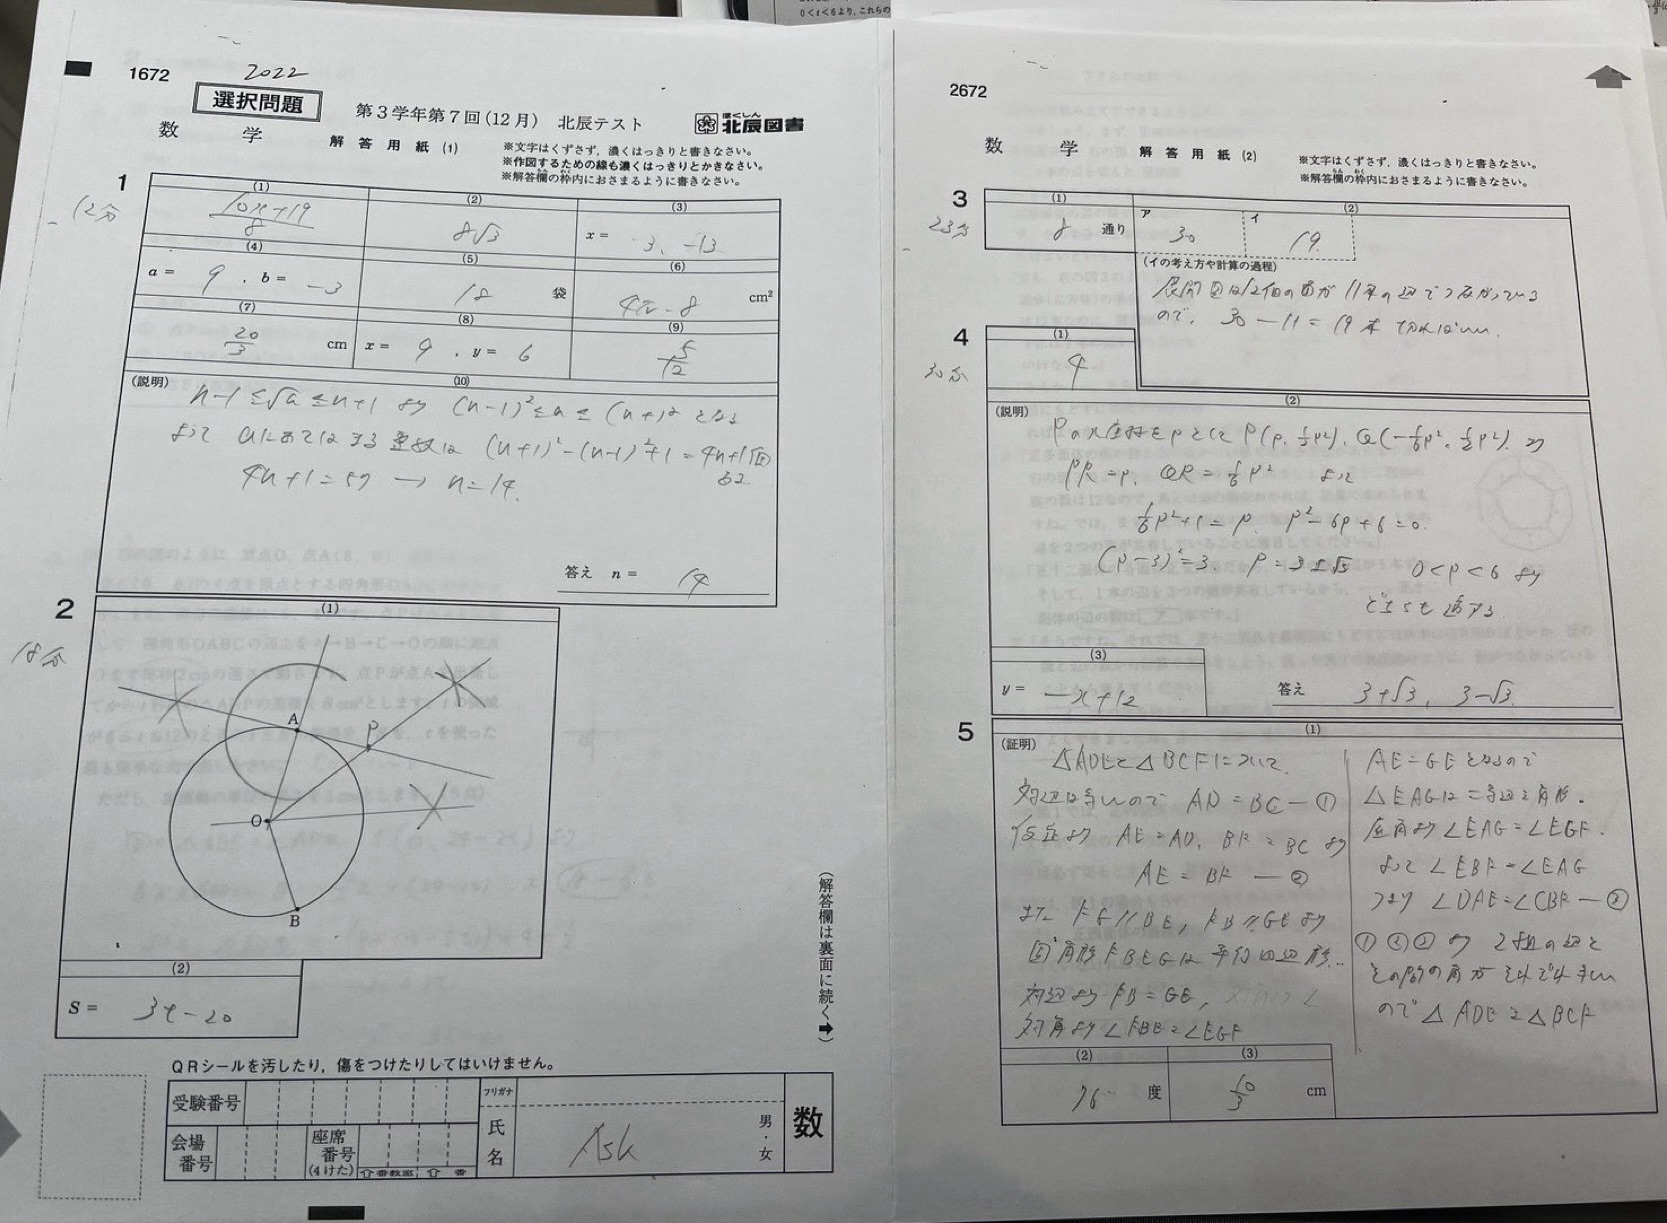 0<t<6より,これらの
1672
2022
選択問題
第3学年第7回(12月) 北辰テスト
ほくしん
北辰図書
数 学
解答用紙(1)
※文字はくずさず,濃くはっきりと書きなさい。
※作図するための線も濃くはっきりとかきなさい。
※解答欄の枠内におさまるように書きなさい。
1
12分
(1)
10x+19
8
(2)
8√3
(3)
x= 3, -13
(4)
a= 9 , b= -3
(5)
18 袋
(6)
4π-8 cm²
(7)
20
3
cm
(8)
x= 9 , y= 6
(9)
5
12
(10)
(説明)
n-1≦√a≦n+1 より (n-1)²≦a≦(n+1)² となる
よって aにあてはまる整数は (n+1)²-(n-1)²+1=4n+1個
ある.
4n+1=57 → n=14.
答え n= 14
2
18分
(1)
A
P
O
B
(2)
S= 3t-20
(解答欄は裏面に続く➡)
QRシールを汚したり,傷をつけたりしてはいけません。
受験番号
会場
番号
座席
番号
(4けた)
フリガナ
氏
名
Ask
男・女
数
2672
数 学
解答用紙(2)
※文字はくずさず,濃くはっきりと書きなさい。
※解答欄の枠内におさまるように書きなさい。
3
23分
(1)
8 通り
(2)
ア
30
イ
19
(イの考え方や計算の過程)
展開図は12個の面が11本の辺でつながっている
ので、30-11=19本 切ればいい.
4
30分
(1)
4
(2)
(説明)
Pのx座標をpとして P(p, ⅓p²), Q(-⅙p², ⅓p²) より
PR=p, QR=⅙p² よって
⅙p²+1=p p²-6p+6=0.
(p-3)²=3 p=3±√3 0<p<6 より
どちらも適する
(3)
y= -x+12
答え 3+√3, 3-√3
5
(1)
(証明)
△ADEと△BCFについて.
対辺は等しいので AD=BC—①
仮定より AE=AD, BF=BC より
AE=BF —②
また FG//BE, FB//GE より
四角形FBEGは平行四辺形.
対辺より FB=GE,
対角より ∠FBE=∠EGF
AE=GE となるので
△EAGは二等辺三角形.
底角より ∠EAG=∠EGF.
よって ∠EBF=∠EAG
つまり ∠DAE=∠CBF—③
①②③より 2組の辺と
その間の角がそれぞれ等しい
ので △ADE≡△BCF
(2)
76 度
(3)
10
3
cm